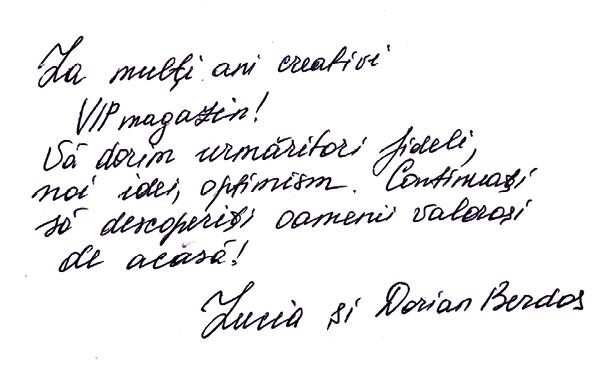 La mulți ani creativi
VIP magazin!
Vă dorim urmăritori fideli,
noi idei, optimism. Continuați
să descoperiți oamenii valoroși
de acasă!
Lucia și Dorian Berdos